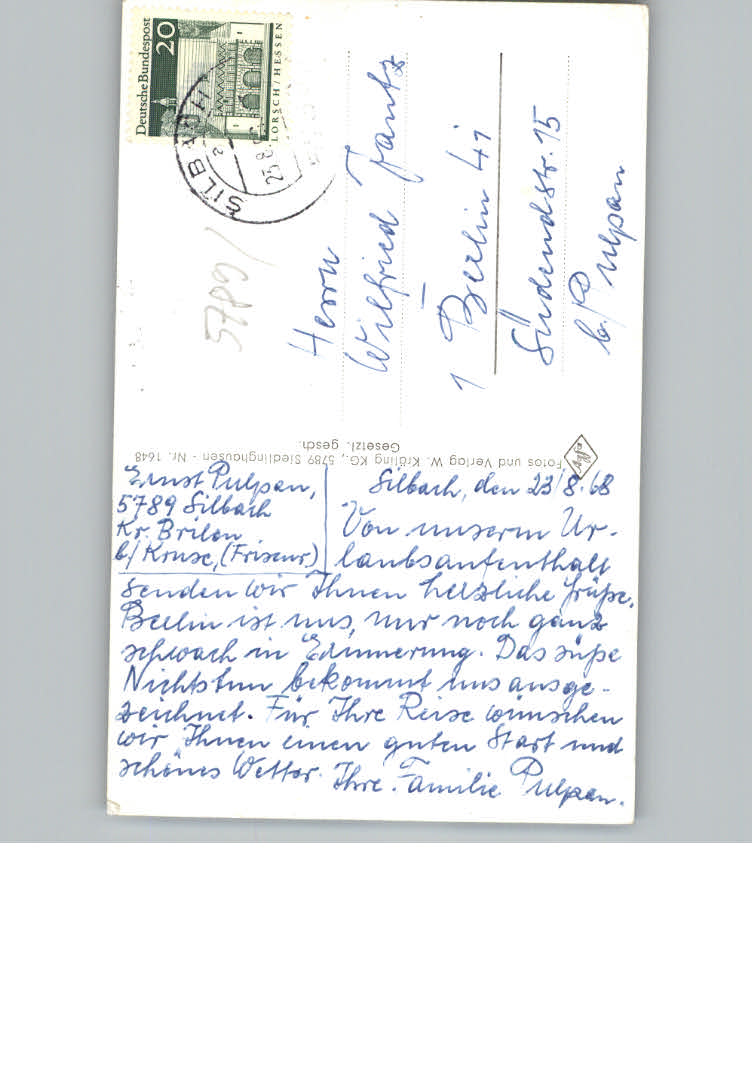 Deutsche Bundespost
20
LORSCH/HESSEN
SILBACH
a
23.8.
5789/
Herrn
Wilfried Jantz
1 Berlin 41
Südendstr. 15
b/Pulpan
Fotos und Verlag W. Kräling KG., 5789 Siedlinghausen - Nr. 1648
Gesetzl. gesch.
Ernst Pulpan,
5789 Silbach
Kr. Brilon
b/Kruse, (Friseur)
Silbach, den 23/8.68
Von unserm Ur-
laubsaufenthalt
senden wir Ihnen herzliche Grüße.
Berlin ist uns, nur noch ganz
schwach in Erinnerung. Das süße
Nichtstun bekommt uns ausge-
zeichnet. Für Ihre Reise wünschen
wir Ihnen einen guten Start und
schönes Wetter. Ihre Familie Pulpan.